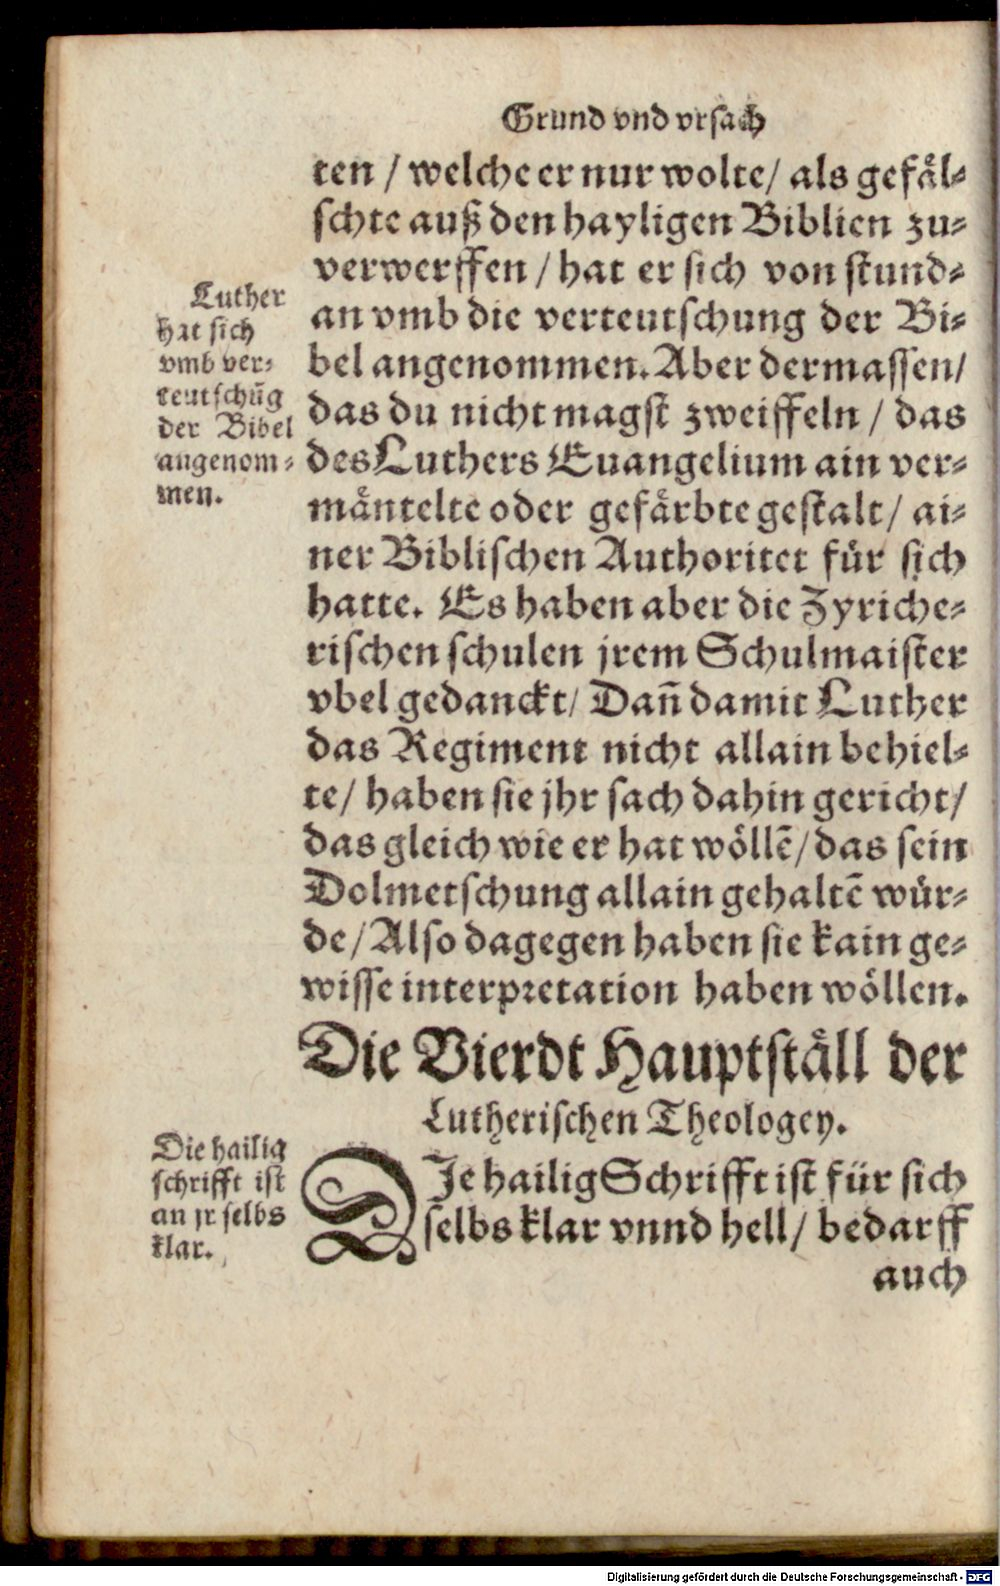 Grund vnd vrsach
ten / welche er nur wolte / als gefäl⸗
schte auß den hayligen Biblien zu⸗
verwerffen / hat er sich von stund⸗
an vmb die verteutschung der Bi⸗
bel angenommen. Aber dermassen /
das du nicht magst zweiffeln / das
des Luthers Euangelium ain ver⸗
mäntelte oder gefärbte gestalt / ai⸗
ner Biblischen Authoritet für sich
hatte. Es haben aber die Zyriche⸗
rischen schulen jrem Schulmaister
vbel gedanckt / Dañ damit Luther
das Regiment nicht allain behiel⸗
te / haben sie jhr sach dahin gericht /
das gleich wie er hat wöllẽ / das sein
Dolmetschung allain gehaltẽ wür⸗
de / Also dagegen haben sie kain ge⸗
wisse interpretation haben wöllen.
Luther
hat sich
vmb ver⸗
teutschũg
der Bibel
angenom⸗
men.
Die Vierdt Hauptställ der
Lutherischen Theologey.
DJe hailig Schrifft ist für sich
selbs klar vnnd hell / bedarff
auch
Die hailig
schrifft ist
an jr selbs
klar.
Digitalisierung gefördert durch die Deutsche Forschungsgemeinschaft - DFG